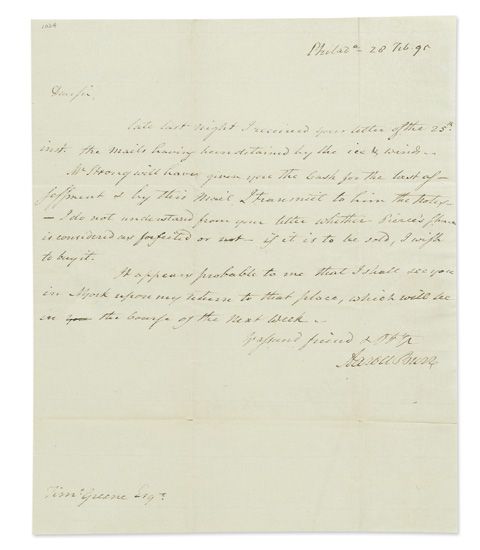 Philad.a 28 Feb. 95
Dear sir,
late last night I received your letter of the 25th
inst. the mails having been detained by the ice & winds –
Mr Strong will have given you the Cash for the last as-
sessment & by this Mail I transmit to him the Notes –
– I do not understand from your letter whether Pierce's share
is considered as forfeited or not – if it is to be sold, I wish
to buy it.
It appears probable to me that I shall see you
in NYork upon my return to that place, which will be
in the Course of the next Week –
friend &
Aaron Burr
Timy Greene Esqr.